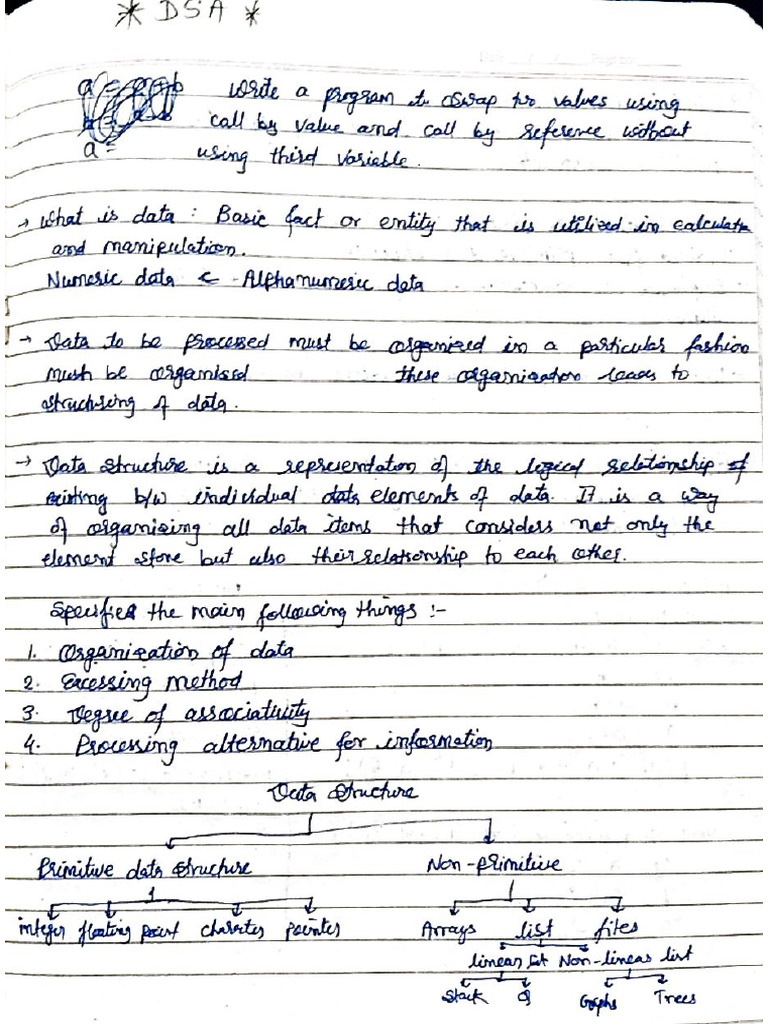 * DSA *
Write a program to swap two values using
call by value and call by reference without
a = using third variable.
→ What is data : Basic fact or entity that is utilized in calculatn
and manipulation.
Numeric data & Alphanumeric data
→ Data to be processed must be organized in a particular fashion
must be organised these organization leads to
structuring of data.
→ Data structure is a representation of the logical relationship of
existing b/w individual data elements of data. It is a way
of organizing all data items that considers not only the
element store but also their relationship to each other.
Specified the main following things :-
1. Organization of data
2. Excessing method
3. Degree of associativity
4. Processing alternative for information
Data structure
Primitive data structure Non-primitive
integer floating point character pointer Arrays list files
linear list Non-linear list
Stack Q Graphs Trees